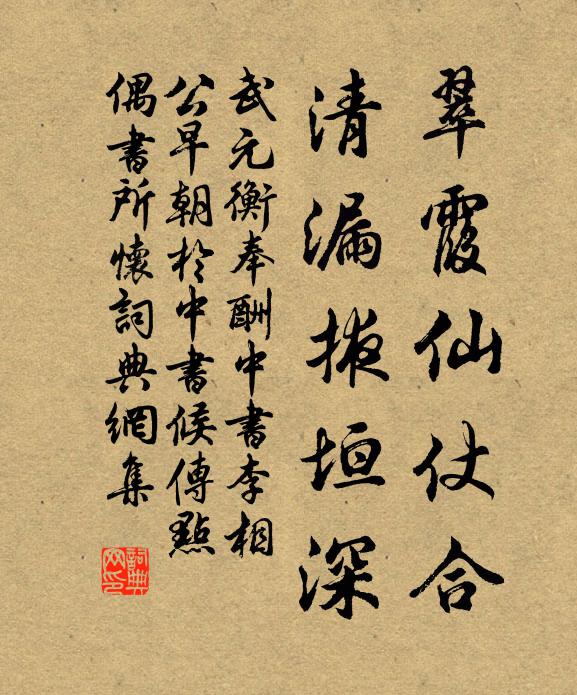 翠霞仙仗合
清漏掖垣深
武元衡奉酬中書李相
公早朝於中書候傳點
偶書所懷詞典網集
詞典网印